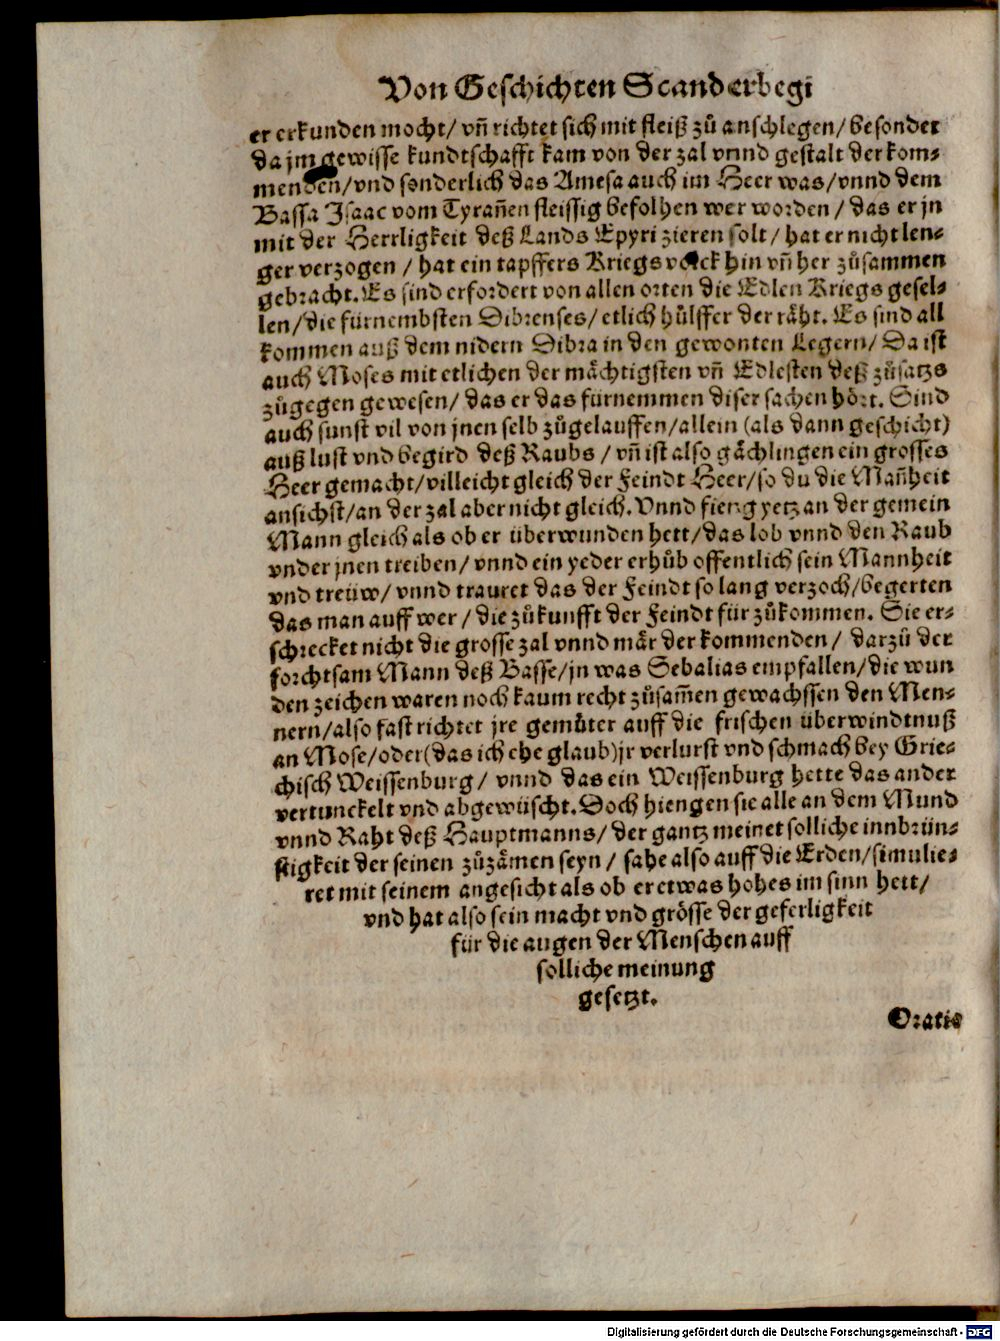 Von Geschichten Scanderbegi
er erkunden mocht/ vñ richtet sich mit fleiß zů anschlegen/ besonder
da jm gewisse kundtschafft kam von der zal vnnd gestalt der kom-
menden/vnd sonderlich das Amesa auch im Heer was/vnnd dem
Bassa Isaac vom Tyrañen fleissig befolhen wer worden/ das er jn
mit der Herrligkeit deß Lands Epyri zieren solt/ hat er nicht len-
ger verzogen/ hat ein tapffers Kriegs volck hin vñ her zůsammen
gebracht. Es sind erfordert von allen orten die Edlen Kriegs gesel-
len/die fürnembsten Dibrenses/ etlich hülffer der räht. Es sind all
kommen auß dem nidern Dibra in den gewonten Legern/ Da ist
auch Moses mit etlichen der mächtigsten vñ Edlesten deß zůsatzs
zůgegen gewesen/ das er das fürnemmen diser sachen hört. Sind
auch sunst vil von jnen selb zůgelauffen/allein (als dann geschicht)
auß lust vnd begird deß Raubs/ vñ ist also gächlingen ein grosses
Heer gemacht/villeicht gleich der Feindt Heer/so du die Mañheit
ansichst/an der zal aber nicht gleich. Vnnd fieng yetz an der gemein
Mann gleich als ob er überwunden hett/das lob vnnd den Raub
vnder jnen treiben/ vnnd ein yeder erhůb offentlich sein Mannheit
vnd treüw/ vnnd trauret das der Feindt so lang verzoch/begerten
das man auff wer/ die zůkunfft der Feindt für zůkommen. Sie er-
schrecket nicht die grosse zal vnnd mär der kommenden/ darzů der
forchtsam Mann deß Basse/jn was Sebalias empfallen/die wun
den zeichen waren noch kaum recht zůsam̃en gewachssen den Men-
nern/also fast richtet jre gemüter auff die frischen überwindtnuß
an Mose/oder(das ich ehe glaub)jr verlurst vnd schmach bey Grie-
chisch Weissenburg/ vnnd das ein Weissenburg hette das ander
vertunckelt vnd abgewüscht. Doch hiengen sie alle an dem Mund
vnnd Raht deß Hauptmanns/ der gantz meinet solliche innbrün-
stigkeit der seinen zůzämen seyn/ sahe also auff die Erden/simulie-
ret mit seinem angesicht als ob er etwas hohes im sinn hett/
vnd hat also sein macht vnd grösse der geferligkeit
für die augen der Menschen auff
solliche meinung
gesetzt.
Oratio
Digitalisierung gefördert durch die Deutsche Forschungsgemeinschaft - DFG